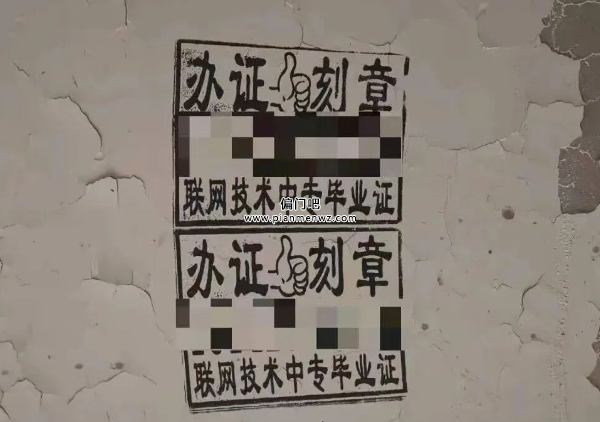 办证 刻章
联网技术中专毕业证
偏门吧
www.pianmenwz.com
办证 刻章
联网技术中专毕业证